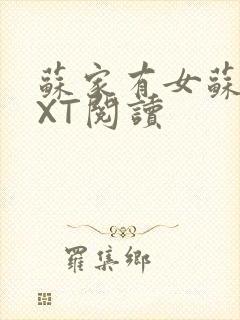 蘇家有女蘇
XT閱讀
羅集鄉